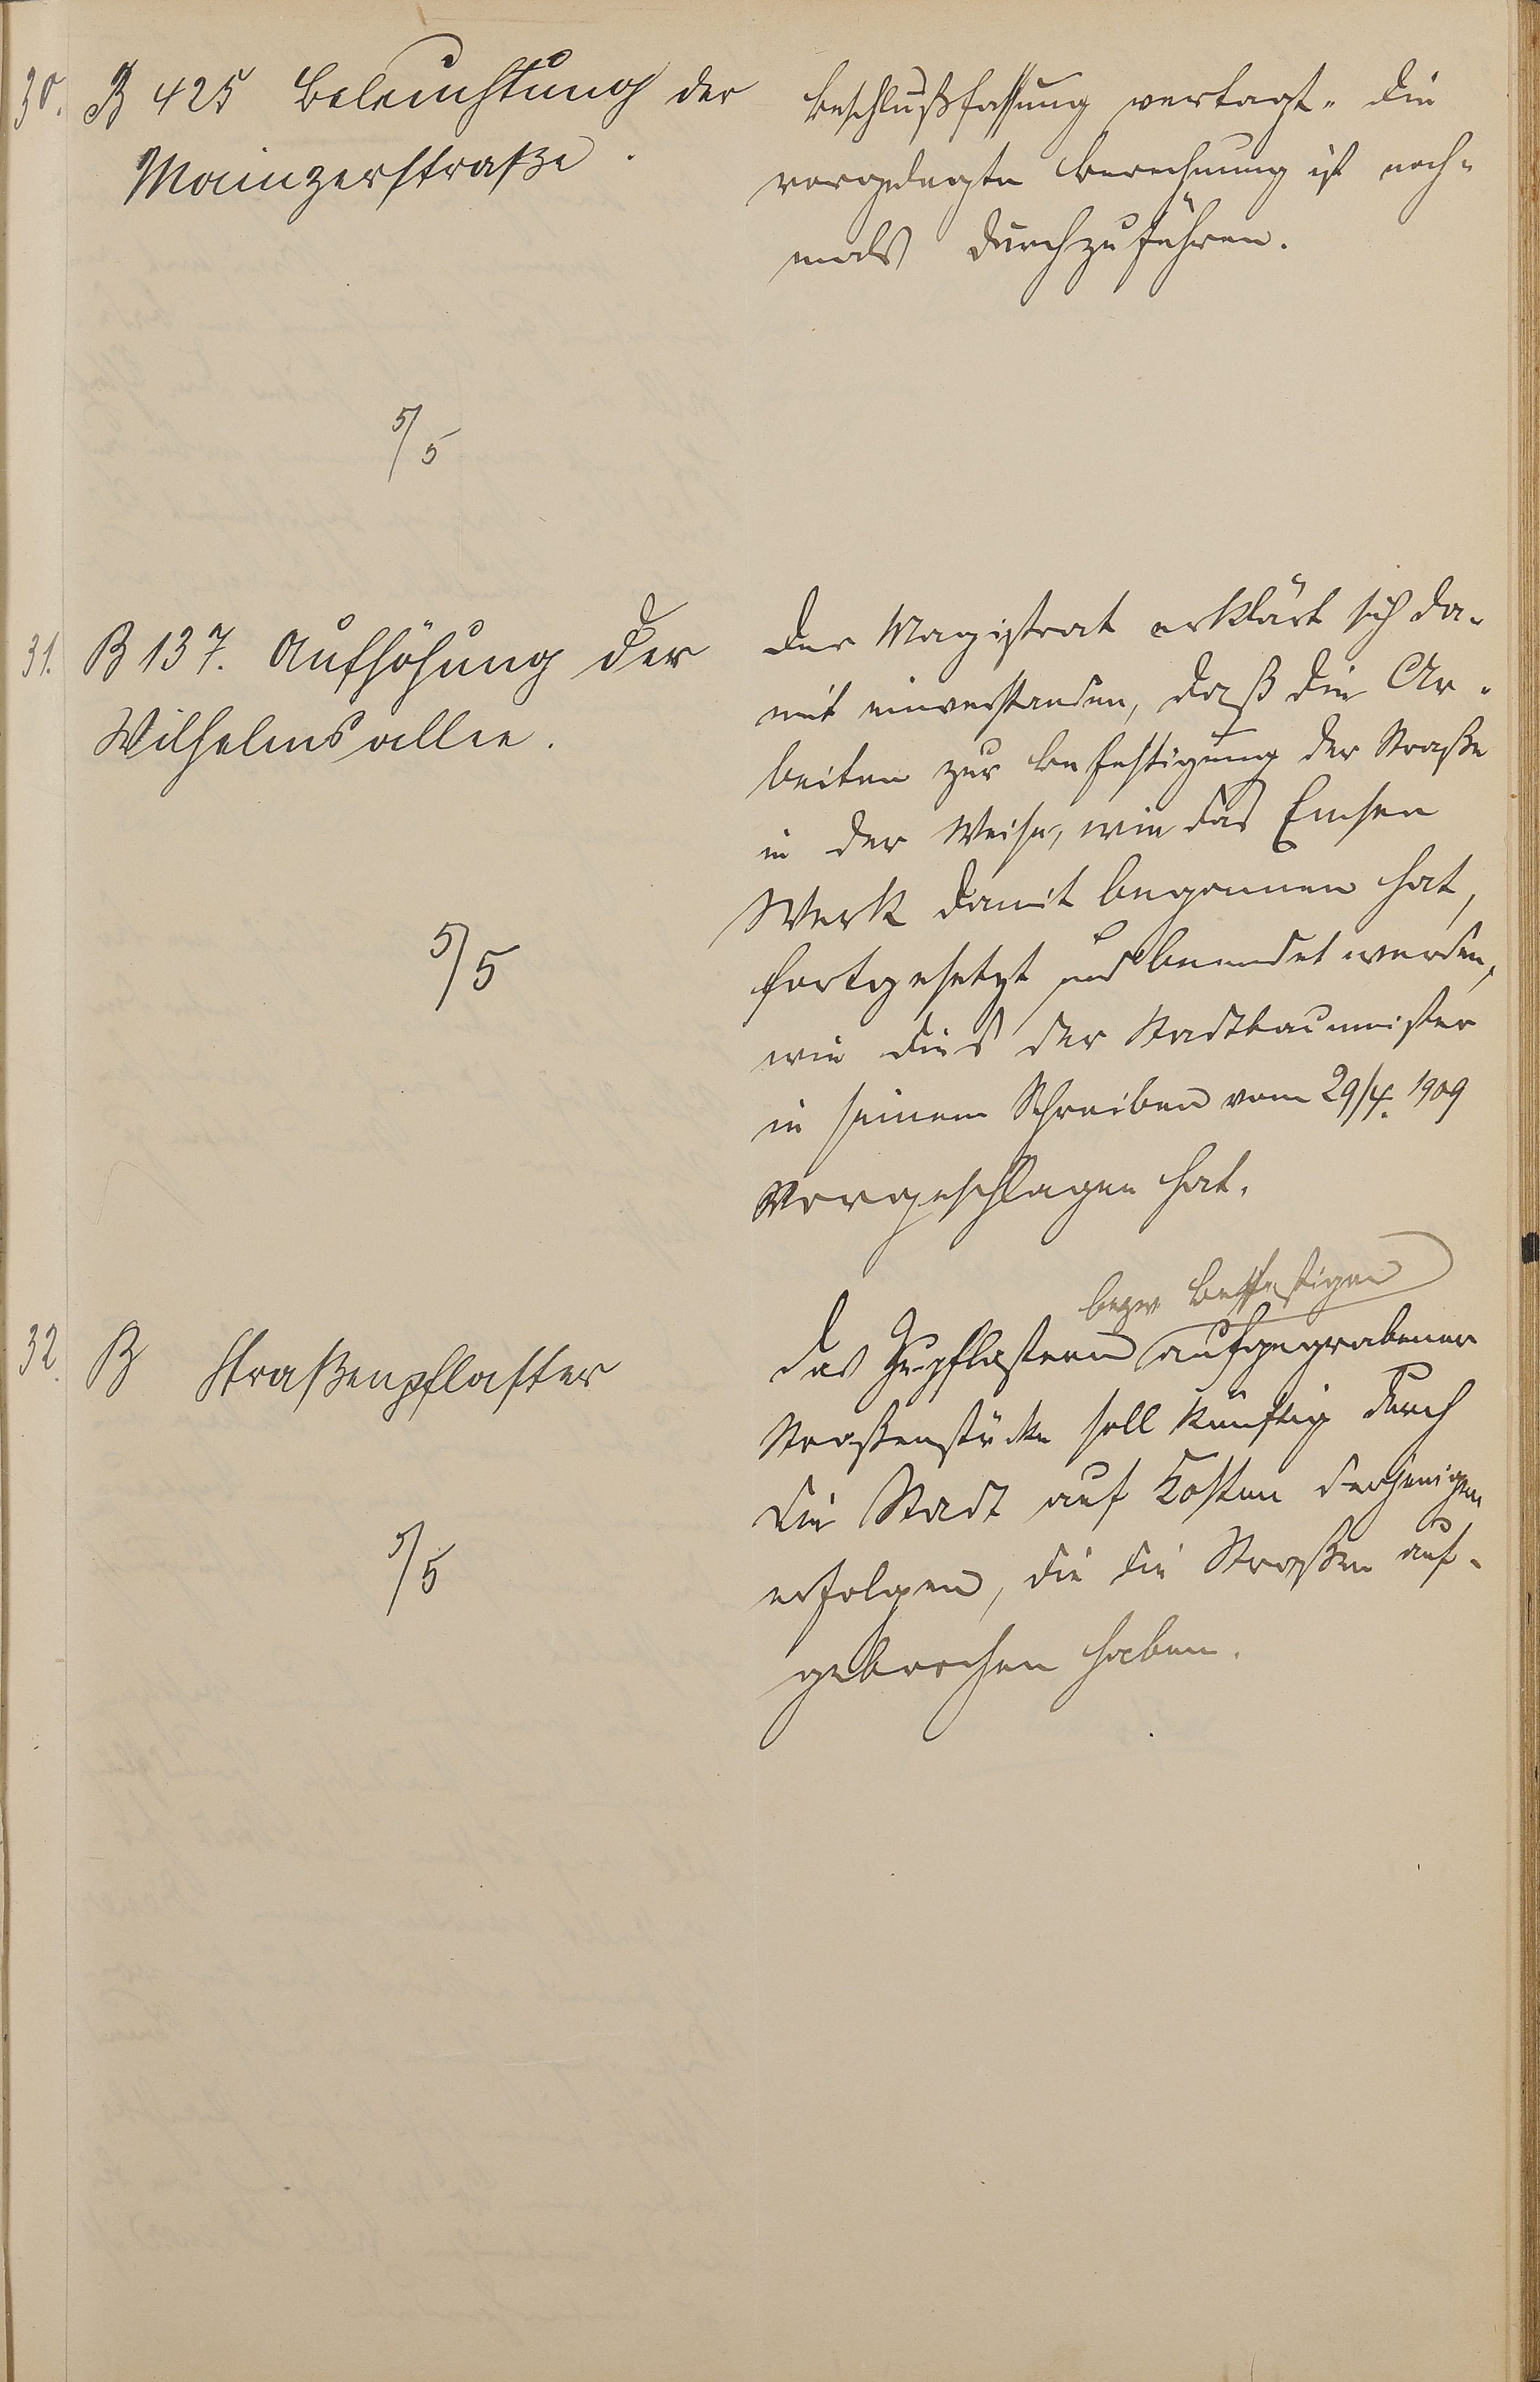 30. B 425 Beleuchtung der
Mainzerstraße.
Beschlußfassung vertagt. Die
vorgelegte Berechnung ist noch-
mals durchzuführen.
5/5
31. B 137. Aufhöhung der
Wilhelmsallee.
Der Magistrat erklärt sich da-
mit einverstanden, daß die Ar-
beiten zur Befestigung der Straße
in der Weise, wie das Emser
Werk damit begonnen hat,
fortgesetzt und beendet werden,
wie dies der Stadtbaumeister
in seinem Schreiben vom 29/4. 1909
vorgeschlagen hat.
5/5
32. B Straßenpflaster
bezw Befestigen
Das Zupflastern aufgegrabener
Straßenstücke soll künftig durch
die Stadt auf Kosten derjenigen
erfolgen, die die Straßen auf-
gebrochen haben.
5/5